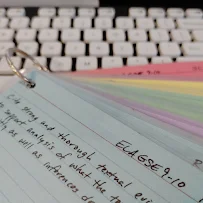 ELAGSE9-10
Cite strong and thorough textual evi
support analysis of what the te
as well as inferences d